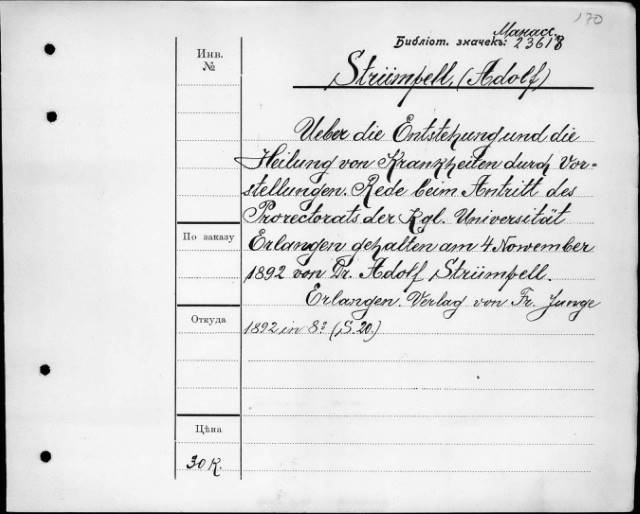 170
Манасс.
Библіот. значекъ: 23618
Инв.
№
Strümpell, (Adolf)
Ueber die Entstehung und die
Heilung von Krankheiten durch Vor-
stellungen. Rede beim Antritt des
Prorectorats der Kgl. Universität
По заказу
Erlangen gehalten am 4 Nowember
1892 von Dr. Adolf Strümpell.
Erlangen. Verlag von Fr. Junge
Откуда
1892 in 8º (S. 20.)
Цѣна
30 K.